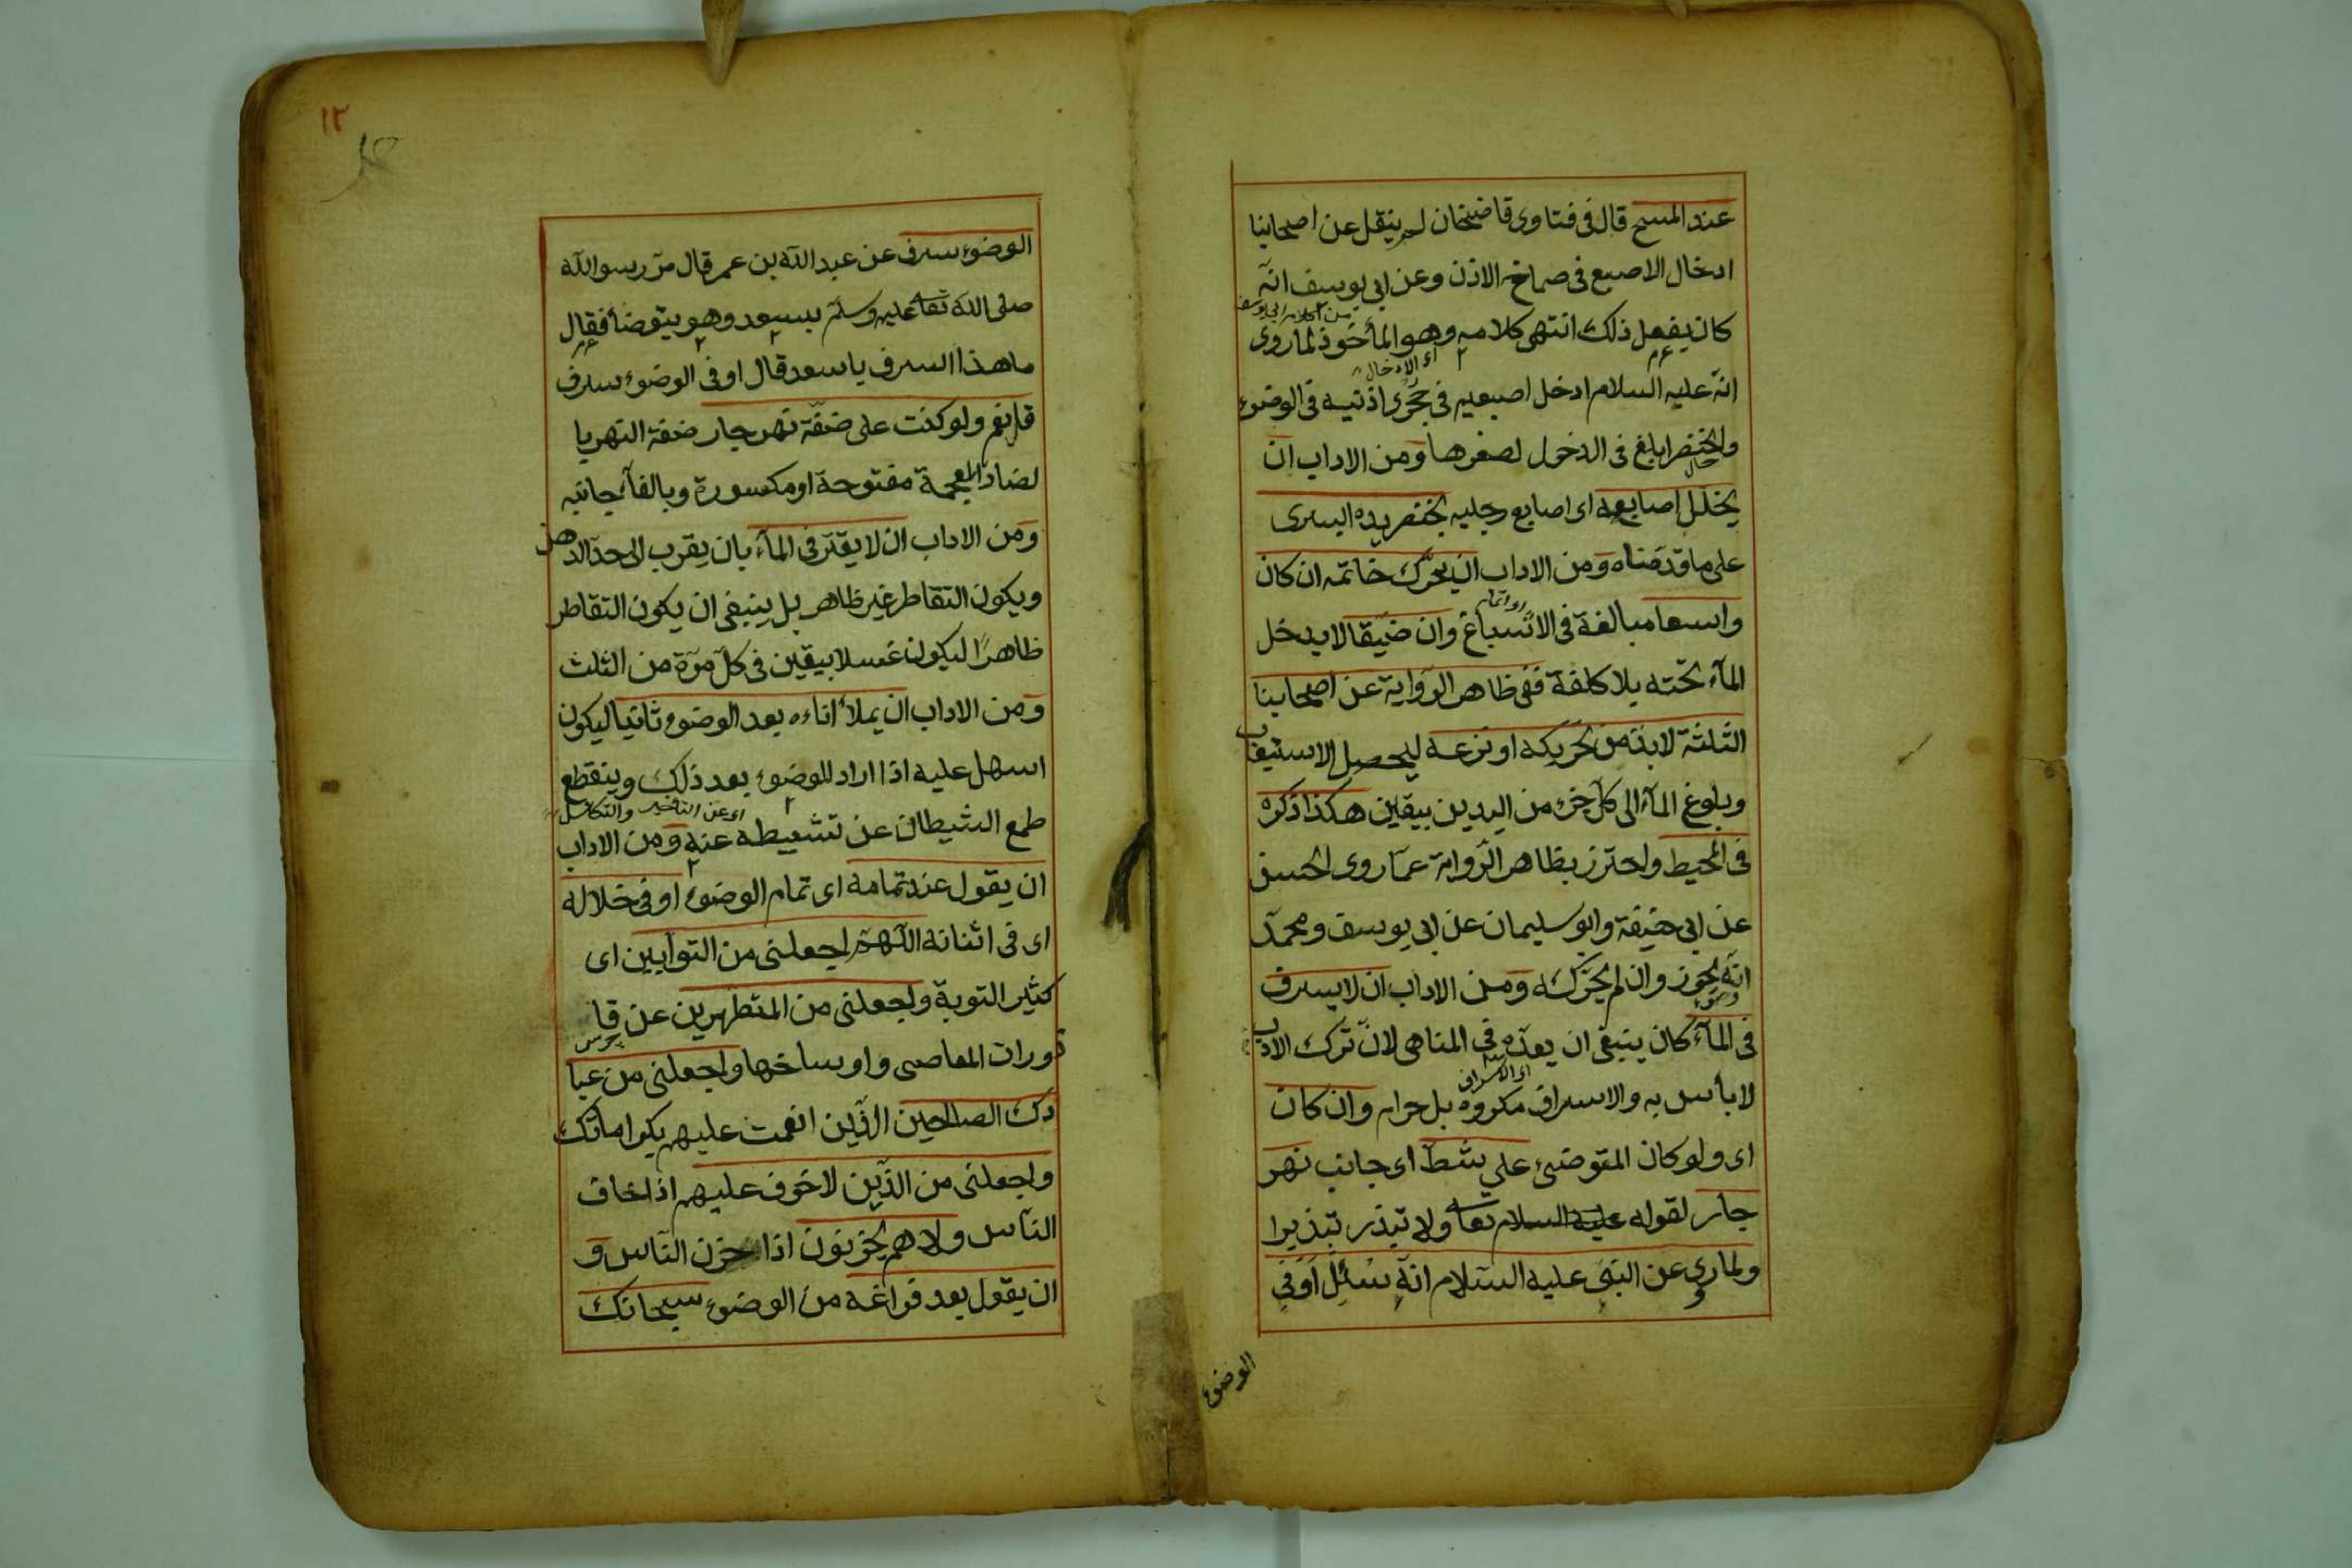 عند المسح قال فى فتاوى قاضيخان لم ينقل عن اصحابنا
ادخال الاصبع فى صماخ الاذن وعن ابى يوسف انّه
كان يفعل ذلك انتهى كلامه وهو المأخوذ لما روى
انّه عليه السلام ادخل اصبعيه فى حجرى اذنيه فى الوضوء
والخنصر ابلغ فى الدخول لصغرها ومن الاداب ان
يخلّل اصابعه اى اصابع رجليه بخنصر يده اليسرى
على ما قدّمناه ومن الاداب ان يحرّك خاتمه ان كان
واسعا مبالغة فى الاسباغ وان ضيّقا لا يدخل
المآء تحته بلا كلفة ففى ظاهر الرّواية عن اصحابنا
الثلثة لابدّ من تحريكه او نزعه ليحصل الاستيعاب
وبلوغ المآء الى كلّ جزء من اليدين بيقين هكذا ذكره
فى المحيط واحترز بظاهر الرّواية عمّا روى الحسن
عن ابى حنيفة وابو سليمان عن ابى يوسف ومحمّد
انّه يجوز وان لم يحرّكه ومن الاداب ان لا يسرف
فى المآء كان ينبغى ان يعدّه فى المناهى لانّ ترك الادب
لا بأس به والاسراف مكروه بل حرام وان كان
اى ولو كان المتوضئ على شطّ اى جانب نهر
جار لقوله عليه السلام تعا ولا تبذر تبذيرا
ولما روى عن النبى عليه السّلام انّه سُئِل اَوَفى
الوضوء
١٢
الوضوء سرف عن عبد اللّه بن عمر قال مرّ رسو اللّه
صلى اللّه تعا عليه وسلّم بسعد وهو يتوضأ فقال
ما هذا السرف يا سعد قال اوفى الوضوء سرف
قال نعم ولو كنت على ضفّة نهر جار ضفة النهر با
لضاد المعجمة مفتوحة او مكسورة وبالفآء جانبه
ومن الاداب ان لا يقتّر فى المآء بان يقرب الى حدّ الدهن
ويكون التقاطر غير ظاهر بل ينبغى ان يكون التقاطر
ظاهرًا ليكون غسلا بيقين فى كلّ مرّة من الثلث
ومن الاداب ان يملأ اناءه بعد الوضوء ثانيا ليكون
اسهل عليه اذا اراد للوضوء بعد ذلك وينقطع
طمع الشيطان عن تثبيطه عنه ومن الاداب
ان يقول عند تمامه اى تمام الوضوء او فى خلاله
اى فى اثنائه اللّهمّ اجعلنى من التوّابين اى
كثير التوبة واجعلنى من المتطهرين عن قا
ذورات المعاصى واوساخها واجعلنى من عبا
دك الصالحين الذّين انعمت عليهم بكراماتك
واجعلنى من الذّين لا خوف عليهم اذا خاف
النّاس ولا هم يحزنون اذا حزن النّاس و
ان يقول بعد فراغه من الوضوء سبحانك